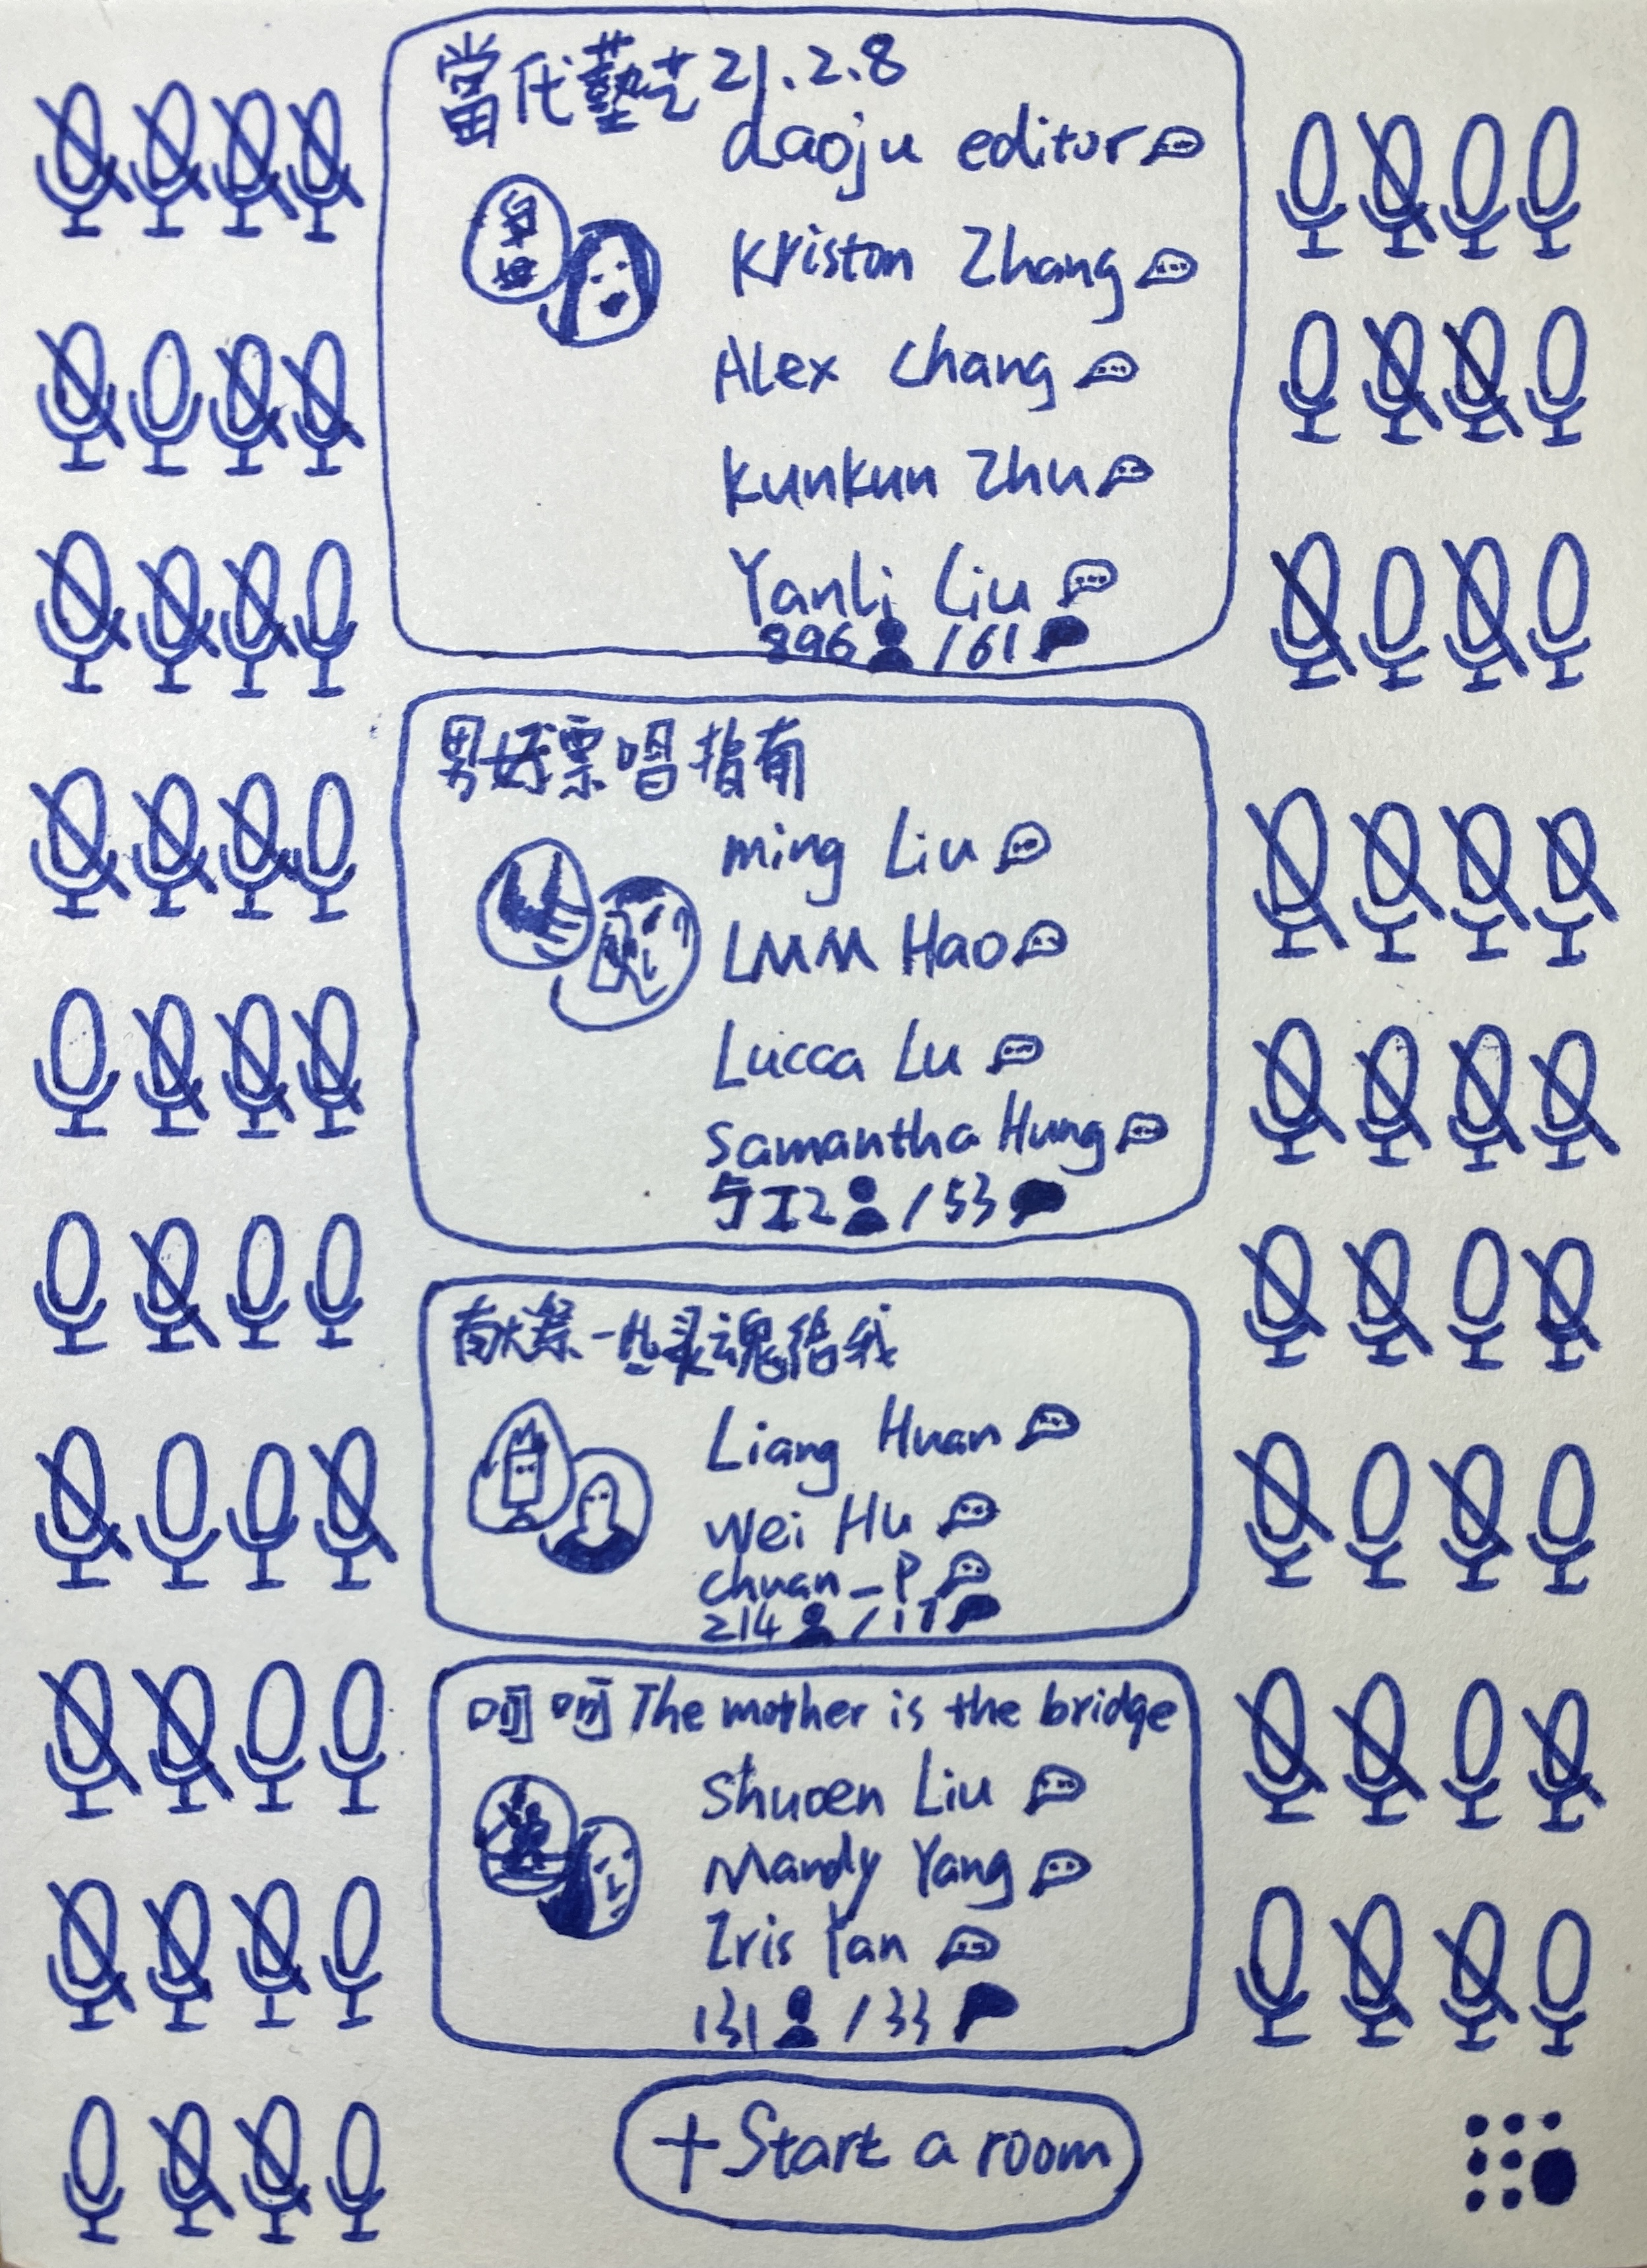 當代藝术 21.2.8
daoju editor
Kriston Zhang
Alex Chang
Kunkun Zhu
Yanli Liu
896 /161
唱指南
ming Liu
LMM Hao
Lucca Lu
Samantha Hung
/53
一些灵魂给我
Liang Huan
Wei Hu
chuan_P
214 /17
The mother is the bridge
Shuoen Liu
Mandy Yang
Iris Yan
131 /33
+Start a room